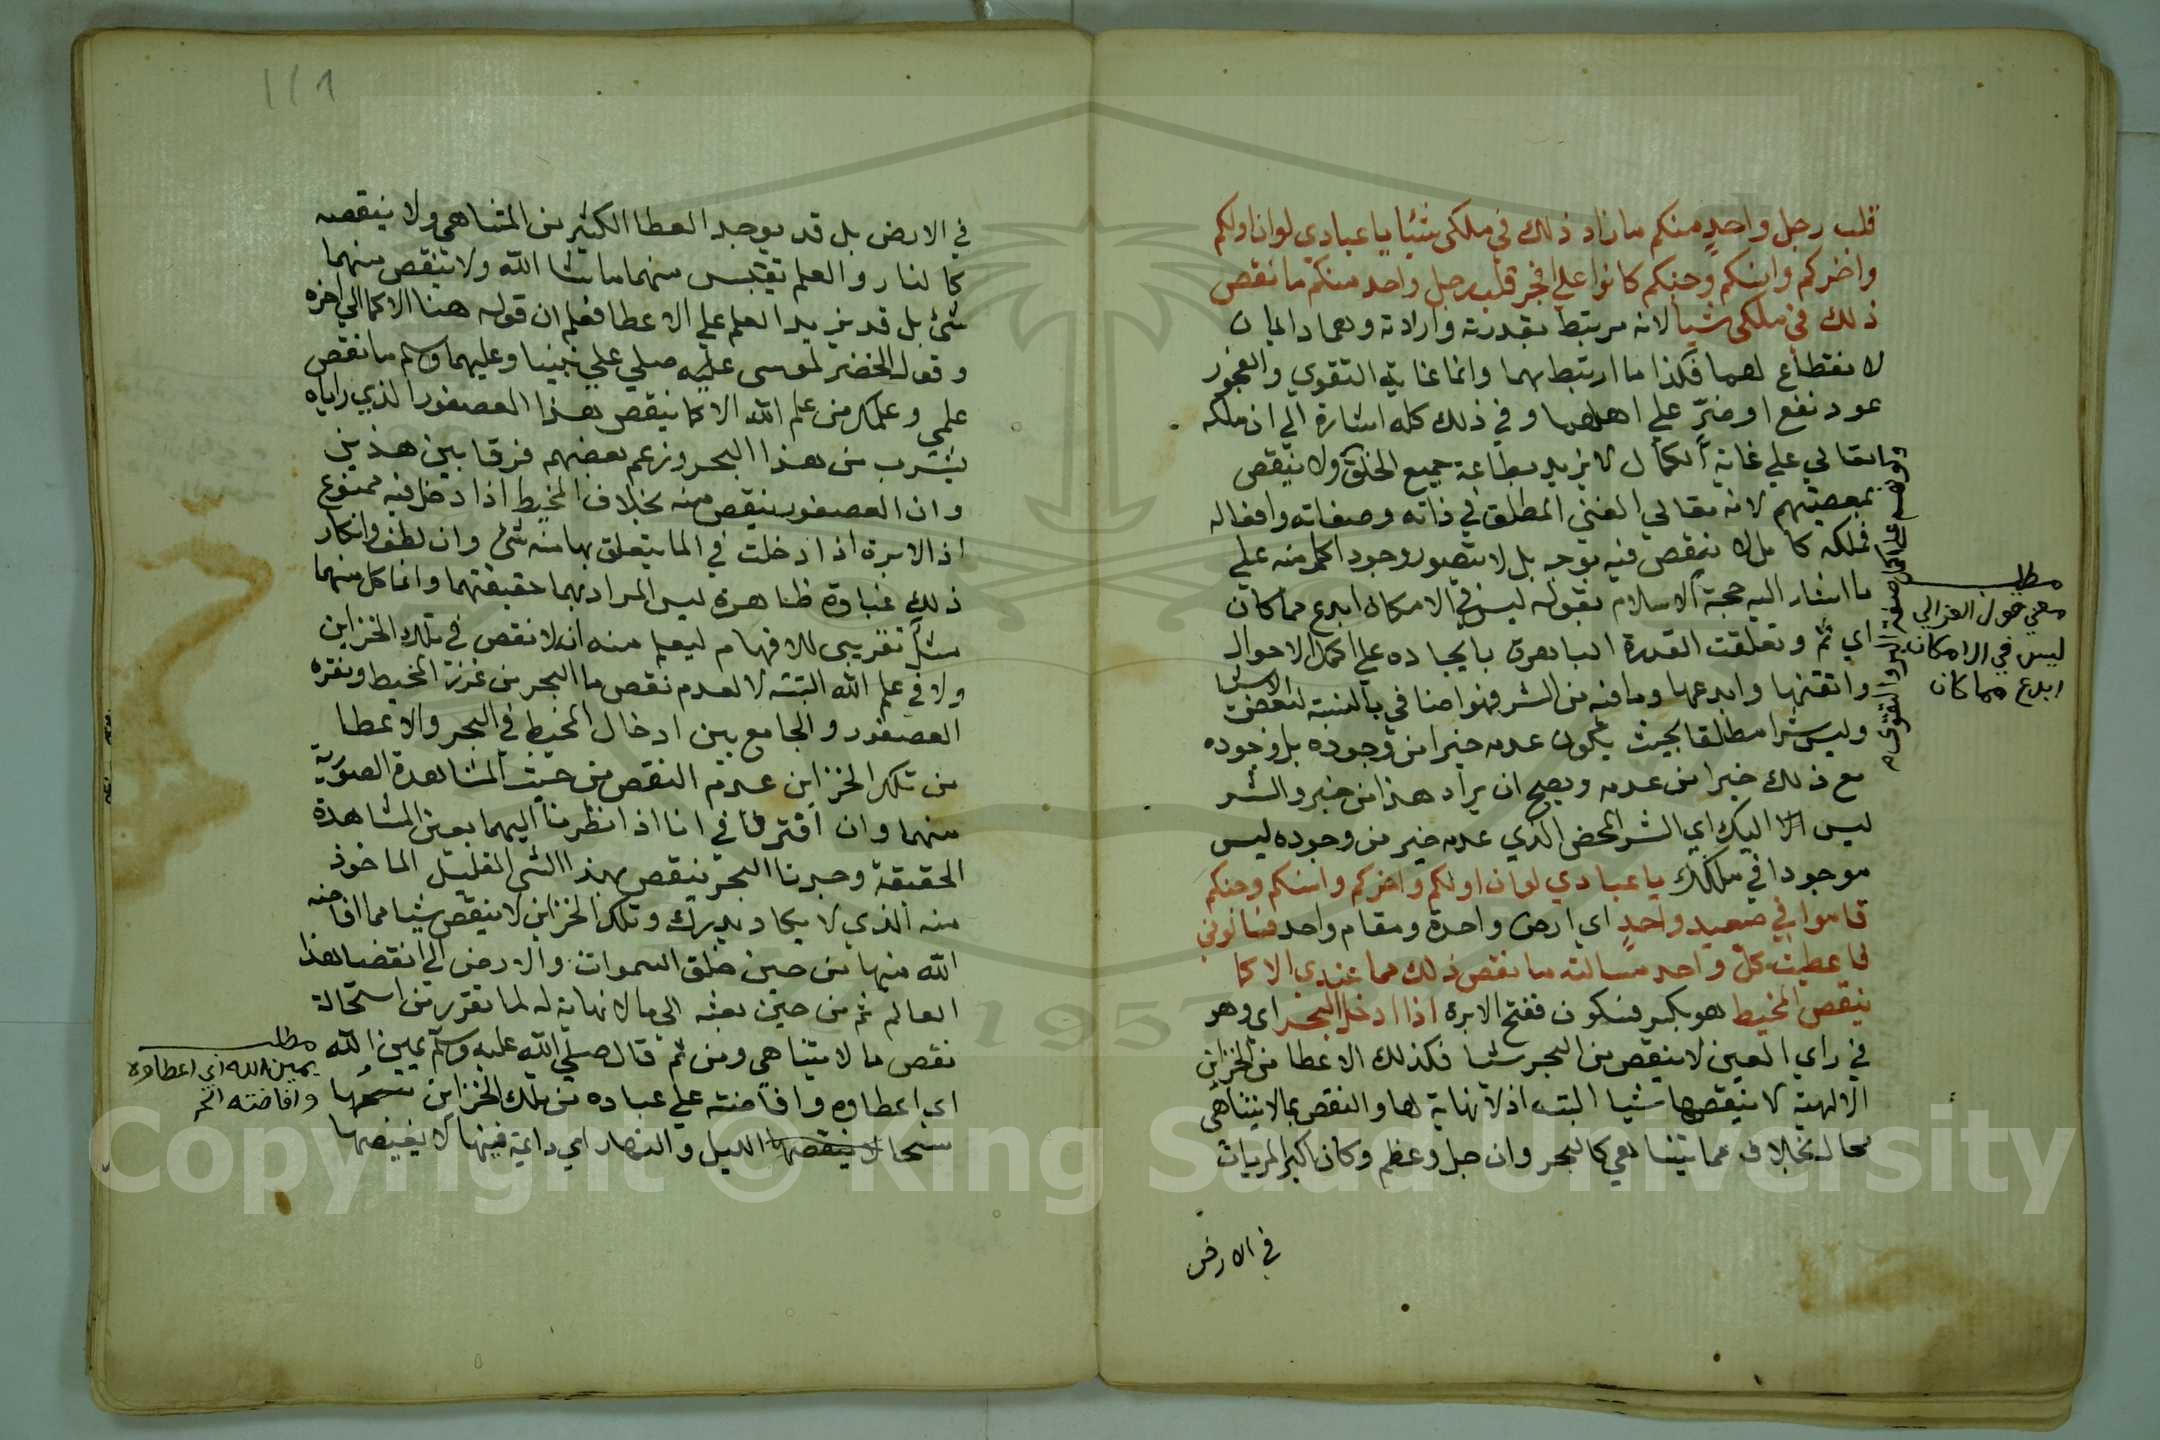 قلب رجل واحد منكم ما زاد ذلك في ملكي شيئا يا عبادي لو ان اولكم
واخركم وانسكم وجنكم كانوا على افجر قلب رجل واحد منكم ما نقص
ذلك في ملكي شيا لانه مرتبط بقدرته وارادته وهما دائمان
لا نقطاع لهما فكذا ما ارتبط بهما وانما غاية التقوي والفجور
عود نفع او ضرّ علي اهلهما وفي ذلك كله اشارة الي ان ملكه
تعالي علي غاية الكمال لا يزيد بطاعة جميع الخلق ولا ينقص
بمعصيتهم لانه تعالي الغني المطلق في ذاته وصفاته وافعاله
فملكه كامل لا نقص فيه بوجه بل لا يتصور وجود اكمل منه علي
ما اشار اليه حجة الاسلام بقوله ليس في الامكان ابدع مما كان
اي ثم وتعلقت القدرة الباهرة بايجاده علي اكمل الاحوال
واتقنها وابدعها وما فيه من الشر فهو اضافي بالنسبة لبعض الاشيا
وليس شرا مطلقا بحيث يكون عدمه خيرا من وجوده بل وجوده
مع ذلك خيرا من عدمه ويصح ان يراد هذا من خبر والشر
ليس اليك اي الشر المحض الذي عدمه خير من وجوده ليس
موجودا في ملكك يا عبادي لو ان اولكم واخركم وانسكم وجنكم
قاموا في صعيد واحد اي ارض واحدة ومقام واحد فسالوني
فاعطيت كل واحد مسالته ما نقص ذلك مما عندي الا كما
ينقص المخيط هو بكسر فسكون ففتح الابرة اذا ادخل البحر اي وهو
في راي العين لا ينقص من البحر شيا فكذلك الاعطا من الخزاين
الالهية لا ينقصها شيا البته اذ لا نهاية لها والنقص مما لا يتناهي
محال بخلاف مما يتناهي كالبحر وان جل وعظم وكان اكبر المرييات
في الارض
مطلب
معني قول الغزالي
ليس في الامكان
ابدع مما كان
١١٨
في الارض بل قد يوجد العطا الكثير من المتناهي ولا ينقصه
كالنار والعلم يقتبس منهما ما شا الله ولا ينقص منهما
شئ بل قد يزيد العلم علي الاعطا فعلم ان قوله هنا الا كما الي اخره
وقول الخضر لموسى علي نبينا وعليهما وسلم ما نقص
علمي وعلمك من علم الله الا كما ينقص هذا العصفور الذي راياه
يشرب من هذا البحر وزعم بعضهم فرقا بين هذين
وان العصفور ينقص منه بخلاف المخيط اذا دخل فيه ممنوع
اذ الابرة اذا دخلت في الما يتعلق بها منه شئ وان لطف وانكار
ذلك غباوة ظاهرة ليس المراد بهما حقيقتهما وانما كل منهما
مثل تقريبي للافهام ليعلم منه انه لا نقص في تلك الخزاين
ولا في علم الله البتة لعدم نقص ما البحر من غرزة المخيط ونقرة
العصفور والجامع بين ادخال المخيط في البحر والاعطا
من تلك الخزاين عدم النقص من حيث المشاهدة الصورية
منهما وان افترقا في انا اذا نظرنا اليهما بعين المشاهدة
الحقيقة وجدنا البحر ينقص بهذا الشي القليل الماخوذ
منه الذي لا يكاد يدرك وتلك الخزاين لا ينقص شيا مما افاضه
الله منها من حين خلق السموات والارض الي انقضا هذا
العالم ثم من حين بعثه الي ما لا نهاية له لما تقرر من استحالة
نقص ما لا يتناهي ومن ثم قال صلي الله عليه وسلم يمين الله
اي اعطاوه وافاضته علي عباده من تلك الخزاين
سحا لا ينقصها الليل والنهار اي دايمة فيها لا يغيضها
مطلب
يمين الله اي اعطاوه
وافاضته الخ